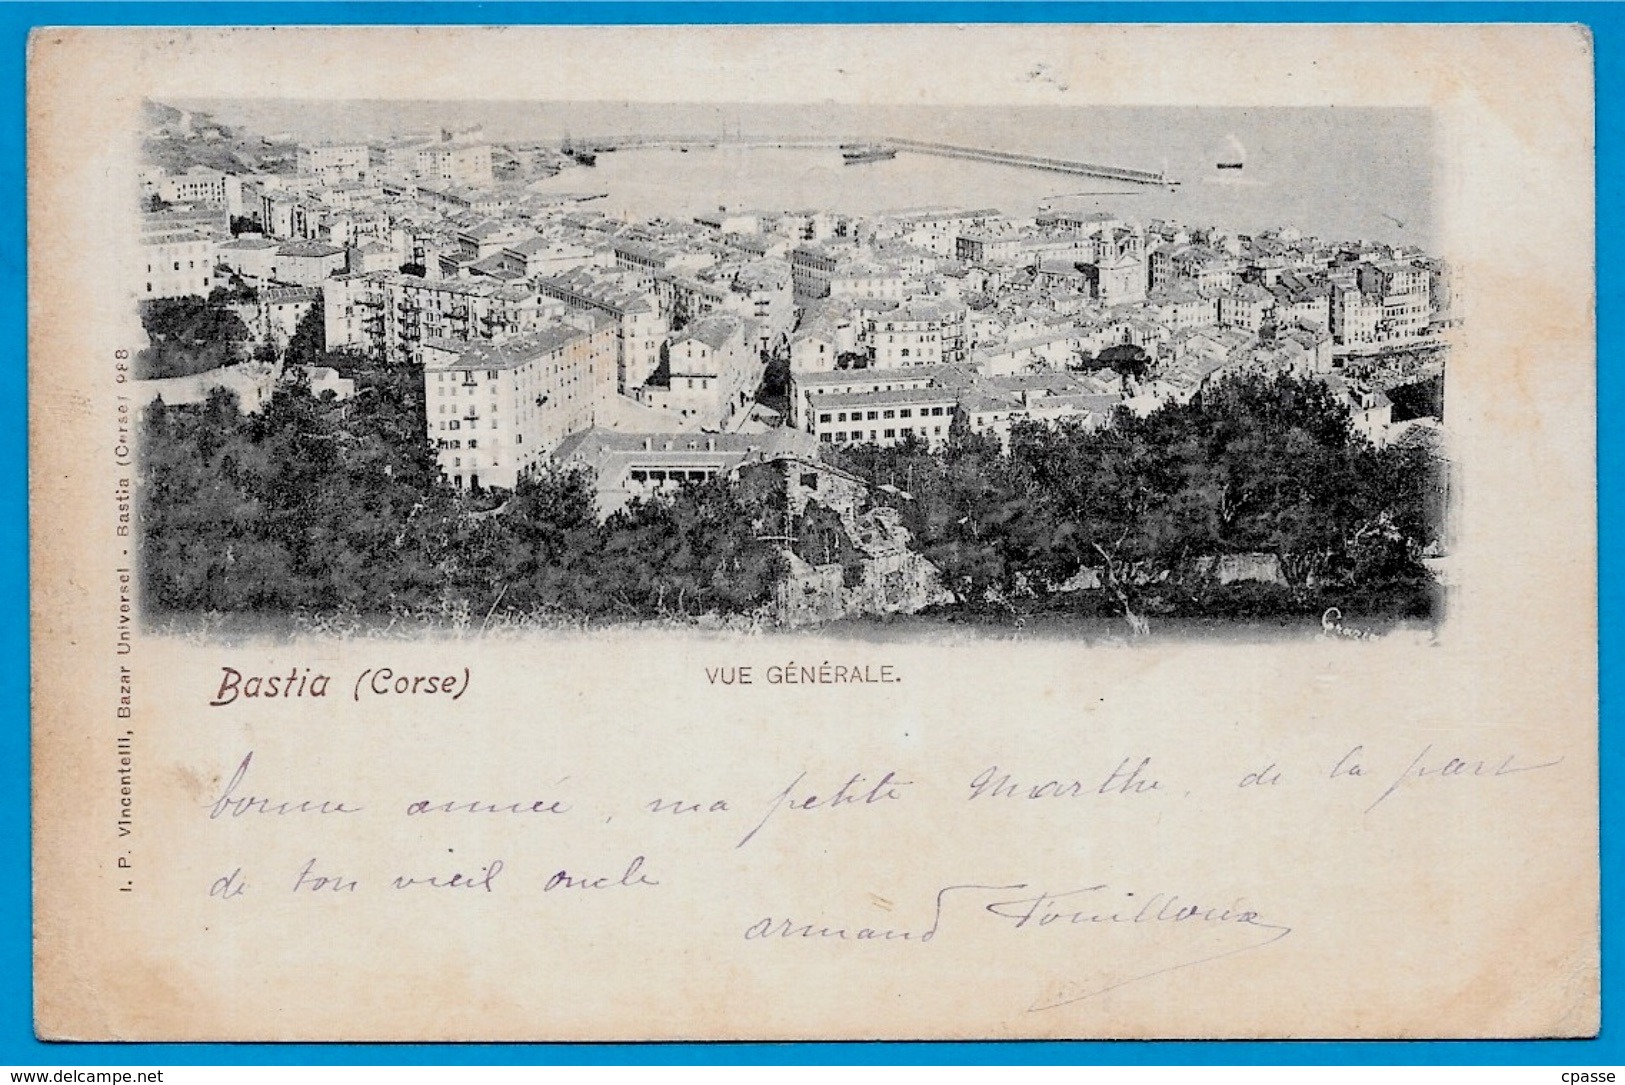 I. P. Vincentelli, Bazar Universel - Bastia (Corse) 988
Grazio
Bastia (Corse)
VUE GÉNÉRALE.
bonne année, ma petite Marthe, de la part
de ton vieil oncle
armand Fouilloux
www.delcampe.net
cpasse